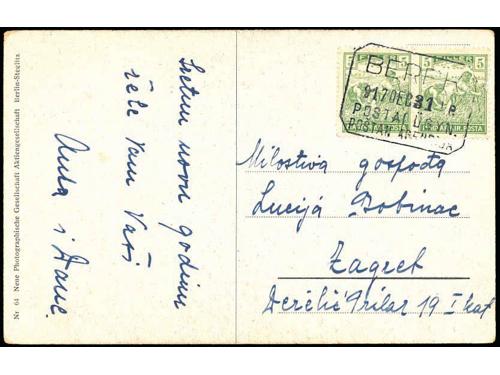 Nr 64 Neue Photographische Gesellschaft Aktiengesellschaft Berlin-Steglitz
Sretnu novu godinu
žele Vam Vaši
Anka i Dane.
5
5
917 DEC 31
POSTAI ÜGYN.
Milostiva gospođa
Lucija Bobinac
Zagreb
Derélić Prilaz 19 I kat